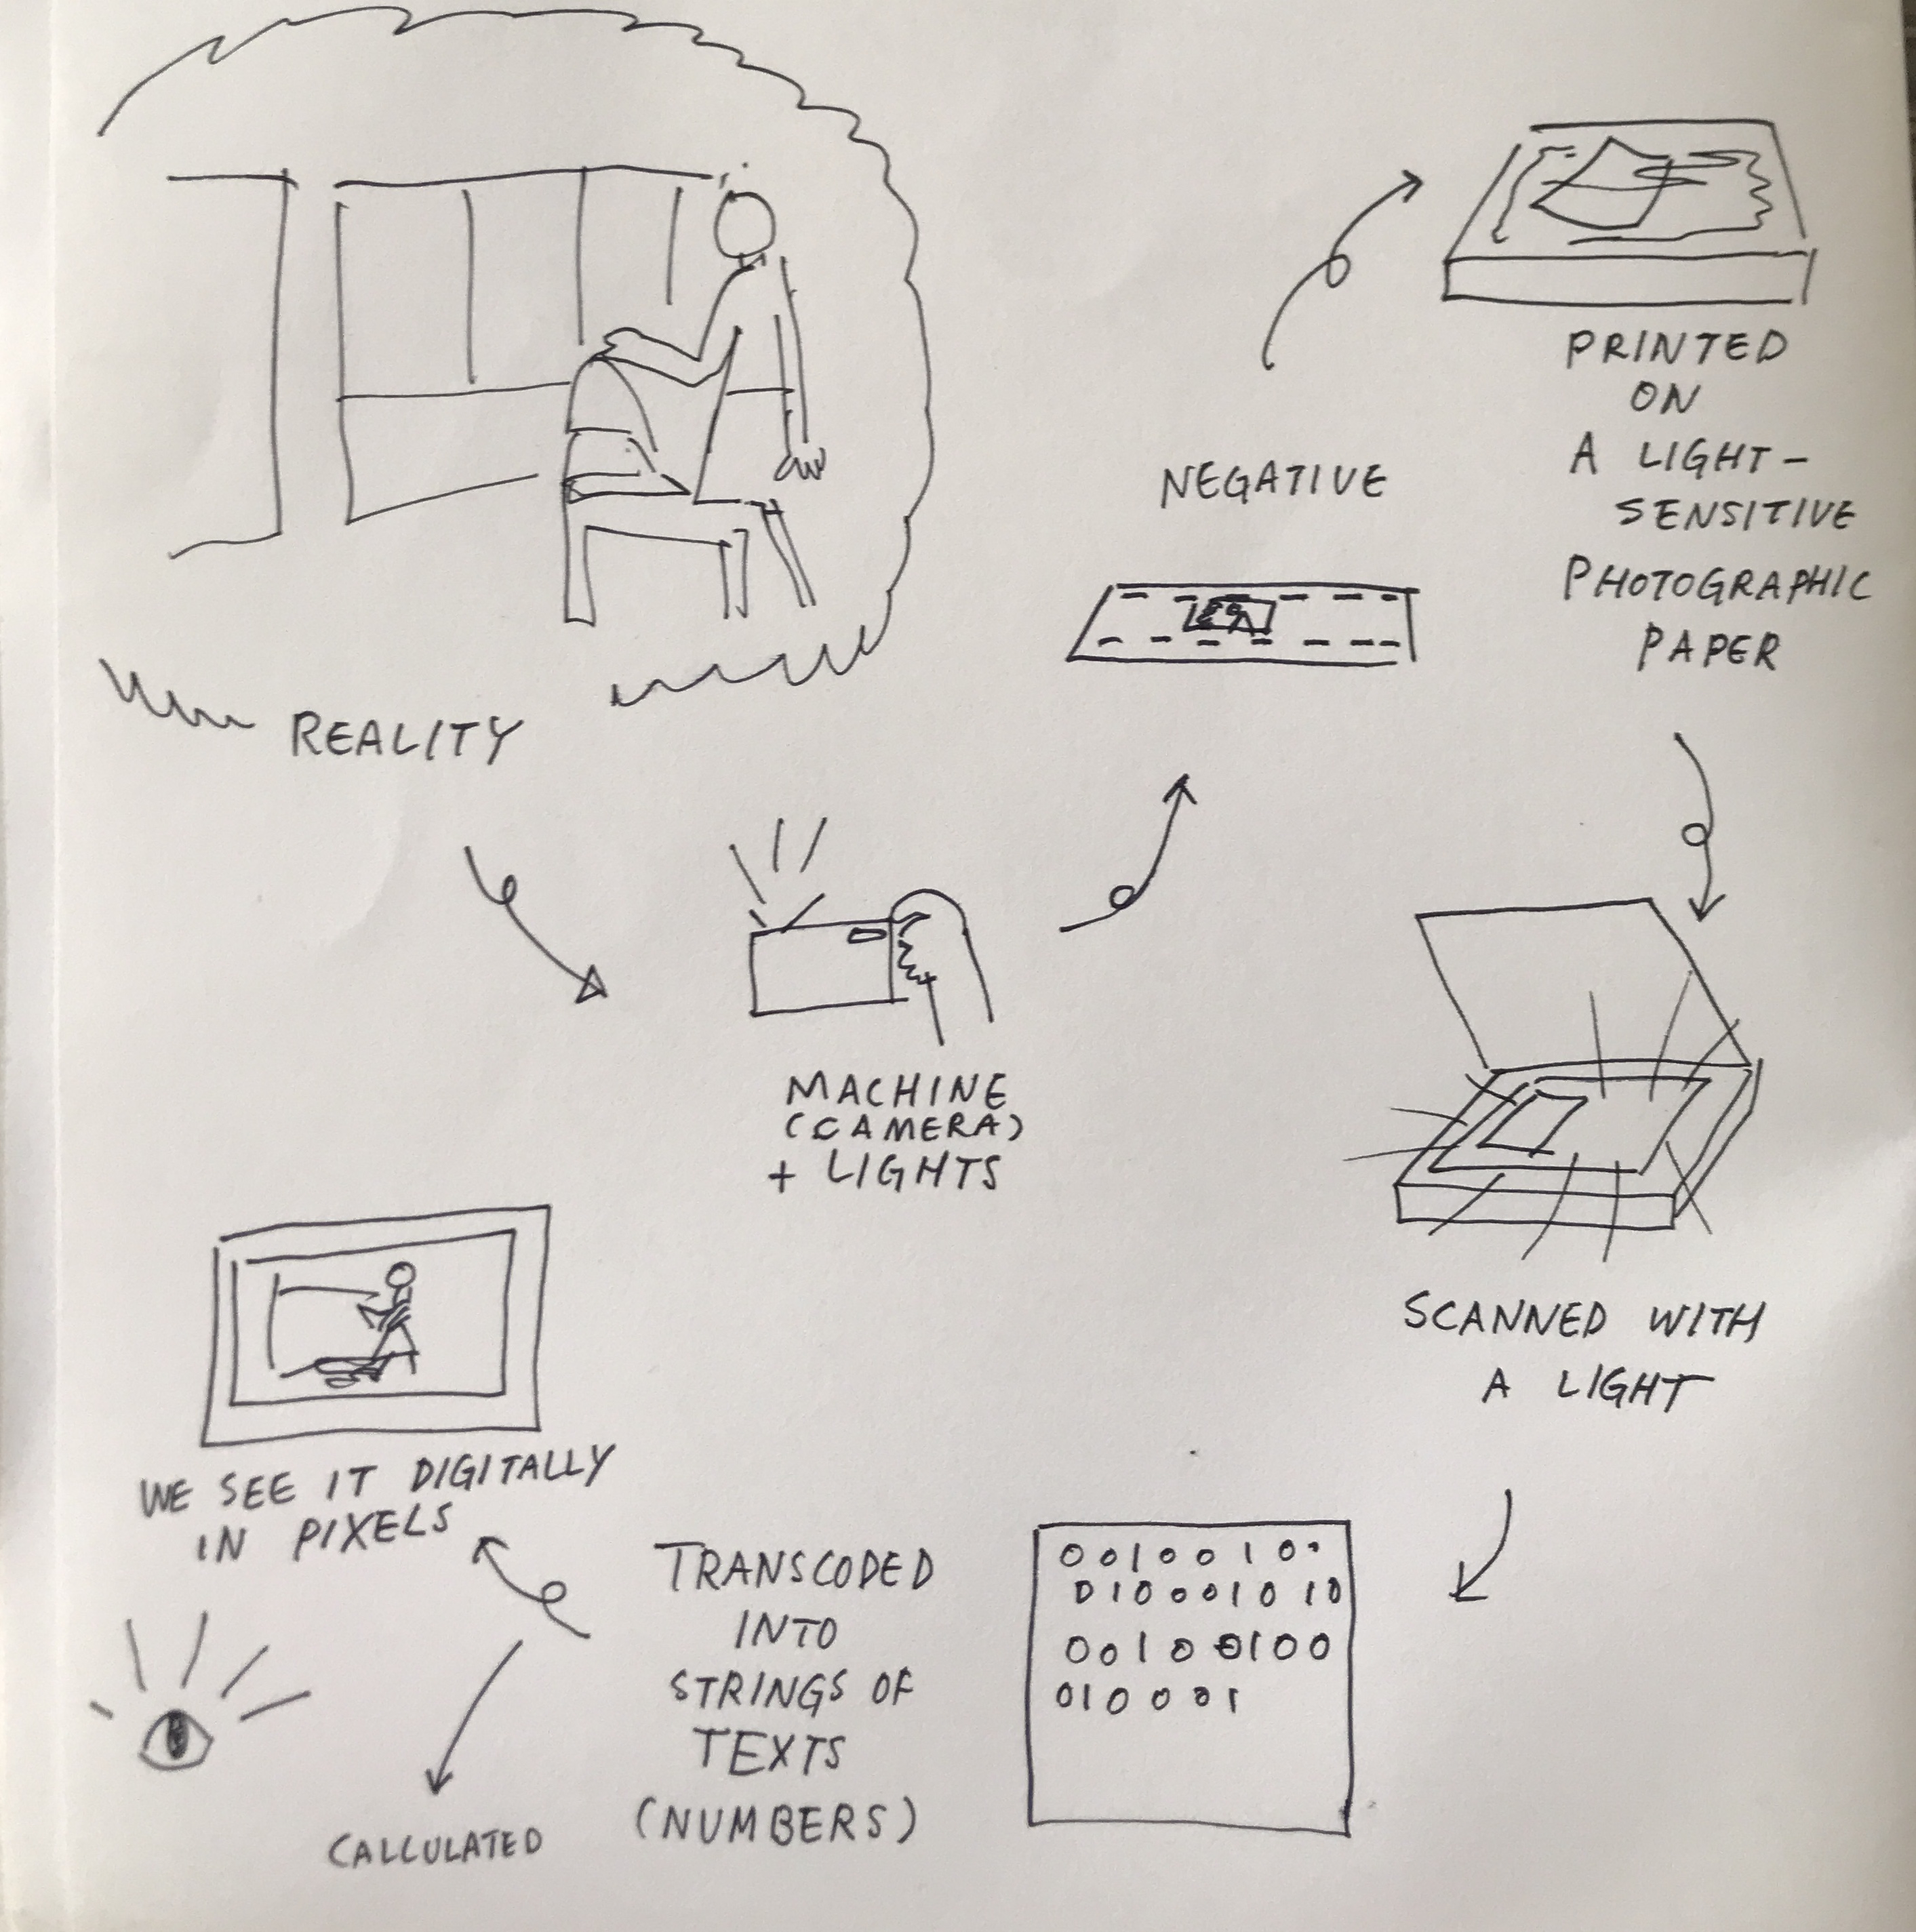 REALITY
MACHINE
(CAMERA)
+ LIGHTS
NEGATIVE
PRINTED
ON
A LIGHT-
SENSITIVE
PHOTOGRAPHIC
PAPER
SCANNED WITH
A LIGHT
0010010
010001010
00100100
010001
TRANSCODED
INTO
STRINGS OF
TEXTS
(NUMBERS)
WE SEE IT DIGITALLY
IN PIXELS
CALCULATED